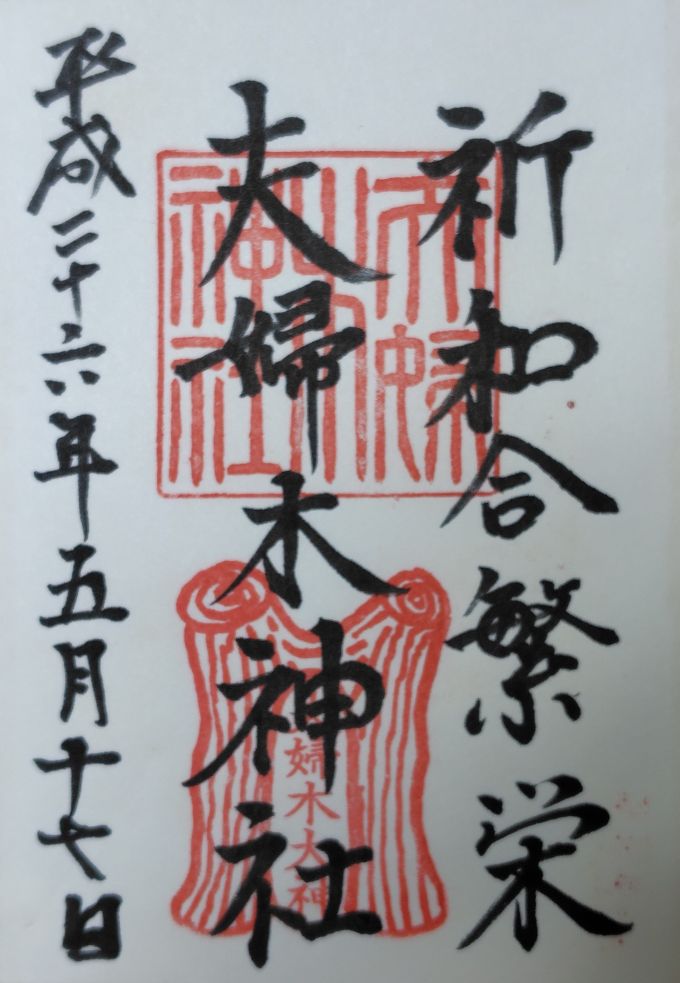 祈和合繁栄
夫婦木神社
平成二十六年五月十七日
婦木大神